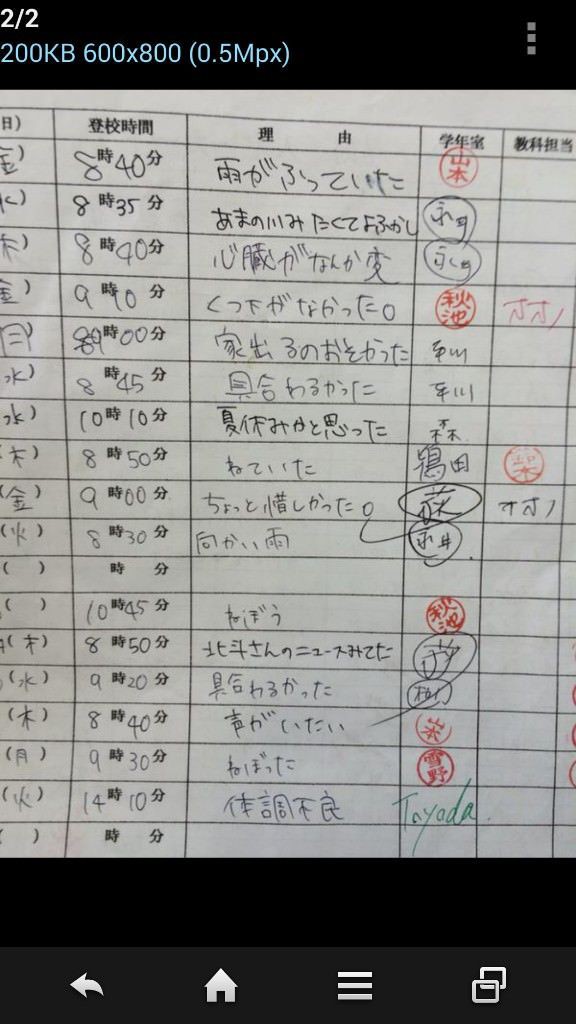 2/2
200KB 600x800 (0.5Mpx)
日) 登校時間 理 由 学年室 教科担当
金) 8時40分 雨がふっていた 山本
水) 8時35分 あまの川みたくてよふかし 永井
木) 8時40分 心臓がなんか変 永井
金) 9時10分 くつ下がなかった。 秋池 オオノ
月) 9時00分 家出るのおそかった 平川
水) 8時45分 具合わるかった 平川
水) 10時10分 夏休みかと思った 森
木) 8時50分 ねていた 鶴田
(金) 9時00分 ちょっと惜しかった。 オオノ
(火) 8時30分 向かい雨 永井
( ) 時 分
( ) 10時45分 ねぼう 秋池
(木) 8時50分 北斗さんのニュースみてた
(水) 9時20分 具合わるかった
(木) 8時40分 声がいたい
(月) 9時30分 ねぼった 雪野
(火) 14時10分 体調不良 Toyoda
( ) 時 分